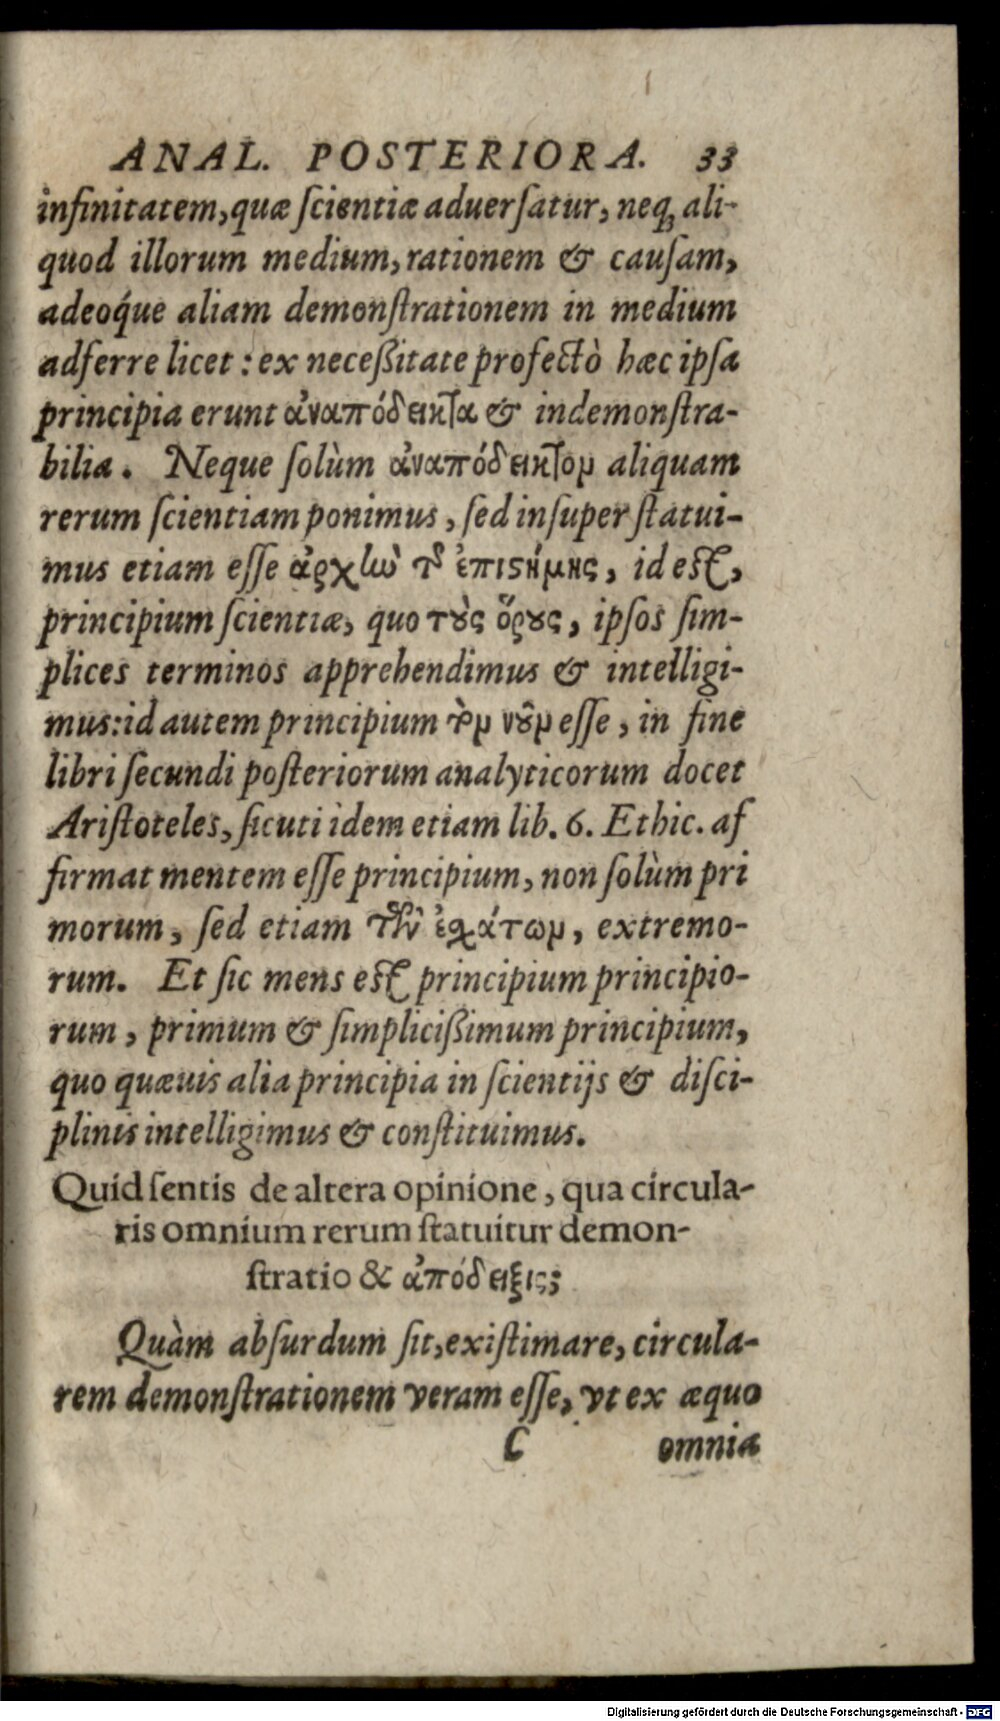 ANAL. POSTERIORA. 33
infinitatem, quæ ſcientiæ aduerſatur, neq; ali-
quod illorum medium, rationem & cauſam,
adeoq́ue aliam demonſtrationem in medium
adferre licet: ex neceßitate profectò hæc ipſa
principia erunt ἀναπόδεικτα & indemonſtra-
bilia. Neque ſolùm ἀναπόδεικτον aliquam
rerum ſcientiam ponimus, ſed inſuper ſtatui-
mus etiam eſſe ἀρχὼ τ͂ ἐπιςήμης, id eſt,
principium ſcientiæ, quo τȣ̀ς ὅρȣς, ipſos ſim-
plices terminos apprehendimus & intelligi-
mus: id autem principium τὸν νȣ͂ν eſſe, in fine
libri ſecundi poſteriorum analyticorum docet
Ariſtoteles, ſicuti idem etiam lib. 6. Ethic. af
firmat mentem eſſe principium, non ſolùm pri
morum, ſed etiam τῶν ἐσχάτων, extremo-
rum. Et ſic mens eſt principium principio-
rum, primum & ſimplicißimum principium,
quo quæuis alia principia in ſcientijs & diſci-
plinis intelligimus & conſtituimus.
Quid ſentis de altera opinione, qua circula-
ris omnium rerum ſtatuitur demon-
ſtratio & ἀπόδειξις;
Quàm abſurdum ſit, exiſtimare, circula-
rem demonſtrationem veram eſſe, vt ex æquo
C omnia
Digitalisierung gefördert durch die Deutsche Forschungsgemeinschaft - DFG